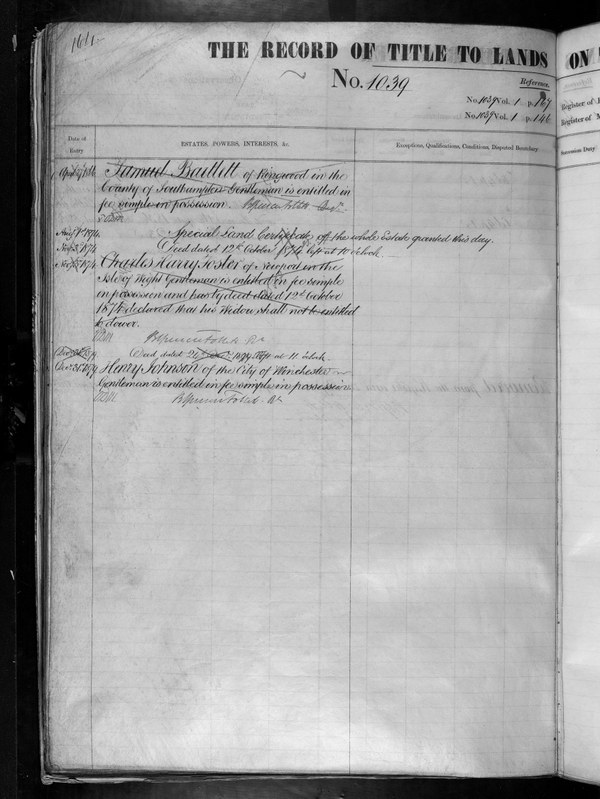 1611
THE RECORD OF TITLE TO LANDS
ON
No. 1039
Reference.
No. 1039 Vol. 1 p. 167
No. 1039 Vol. 1 p. 146
Register of
Register of
Date of
Entry
ESTATES, POWERS, INTERESTS, &c.
Exceptions, Qualifications, Conditions, Disputed Boundary
Succession Duty
Samuel Bartlett of Ringwood in the
County of Southampton Gentleman is entitled in
fee simple in possession.
Special Land Certificate of the whole Estate granted this day.
Nov. 1874 Deed dated 12th October 1874 left at 10 o'clock.
Nov. 1874 Charles Harry Foster of Newport in the
Isle of Wight Gentleman is entitled in fee simple
in possession and has by deed dated 12th October
1874 declared that his Widow shall not be entitled
to dower.
Deed dated 1879 left at 11 o'clock.
Henry Johnson of the City of Winchester
Gentleman is entitled in fee simple in possession